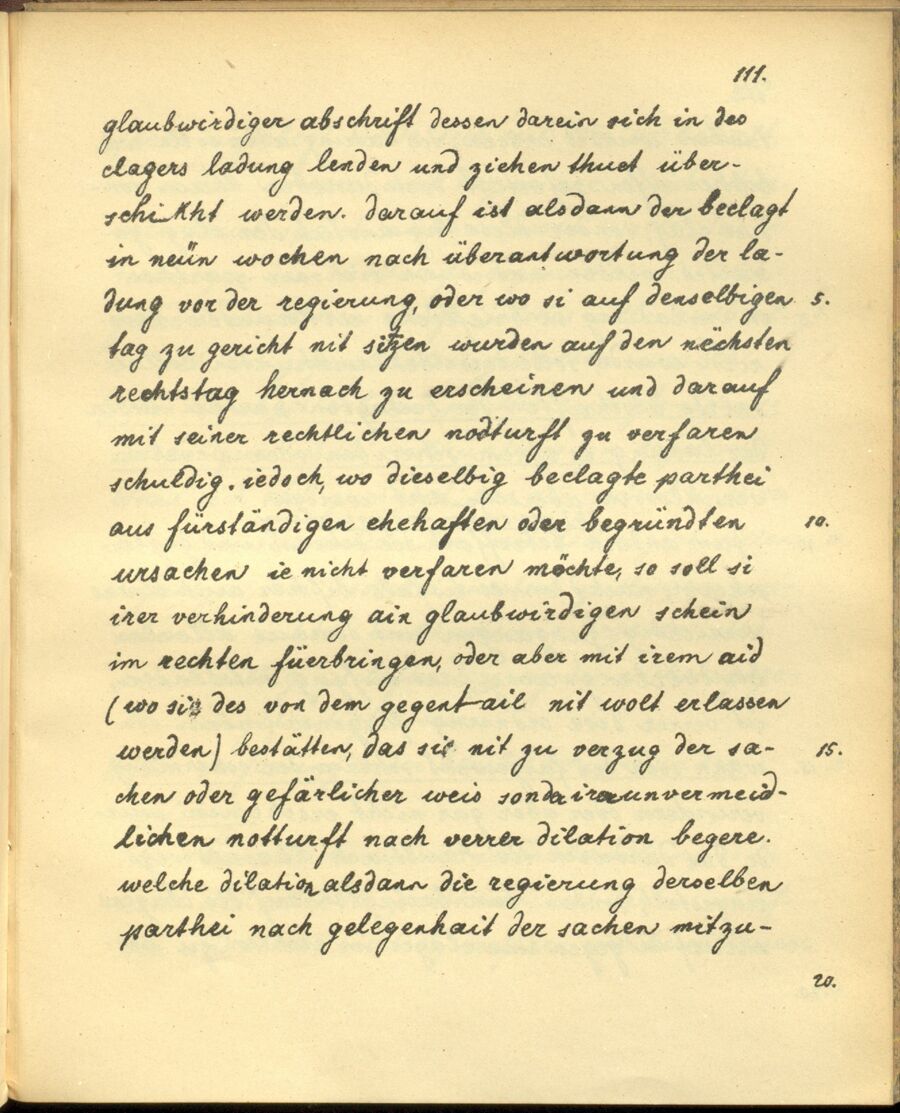 111.
glaubwirdiger abschrift dessen darein sich in des
clagers ladung lenden und ziehen thuet über-
schikht werden. darauf ist alsdann der beclagt
in neün wochen nach überantwortung der la-
dung vor der regierung, oder wo si auf denselbigen 5.
tag zu gericht nit sitzen wurden auf den nëchsten
rechtstag hernach zu erscheinen und darauf
mit seiner rechtlichen nodturft zu verfaren
schuldig. iedoch, wo dieselbig beclagte parthei
aus fürständigen ehehaften oder begründten 10.
ursachen ie nicht verfaren möchte, so soll si
irer verhinderung ain glaubwirdigen schein
im rechten füerbringen, oder aber mit irem aid
(wo sie des von dem gegentail nit wolt erlassen
werden) bestätten, das sie nit zu verzug der sa- 15.
chen oder gefärlicher weis sonder irer unvermeid-
lichen notturft nach verrer dilation begere.
welche dilation alsdann die regierung derselben
parthei nach gelegenhait der sachen mitzu-
20.